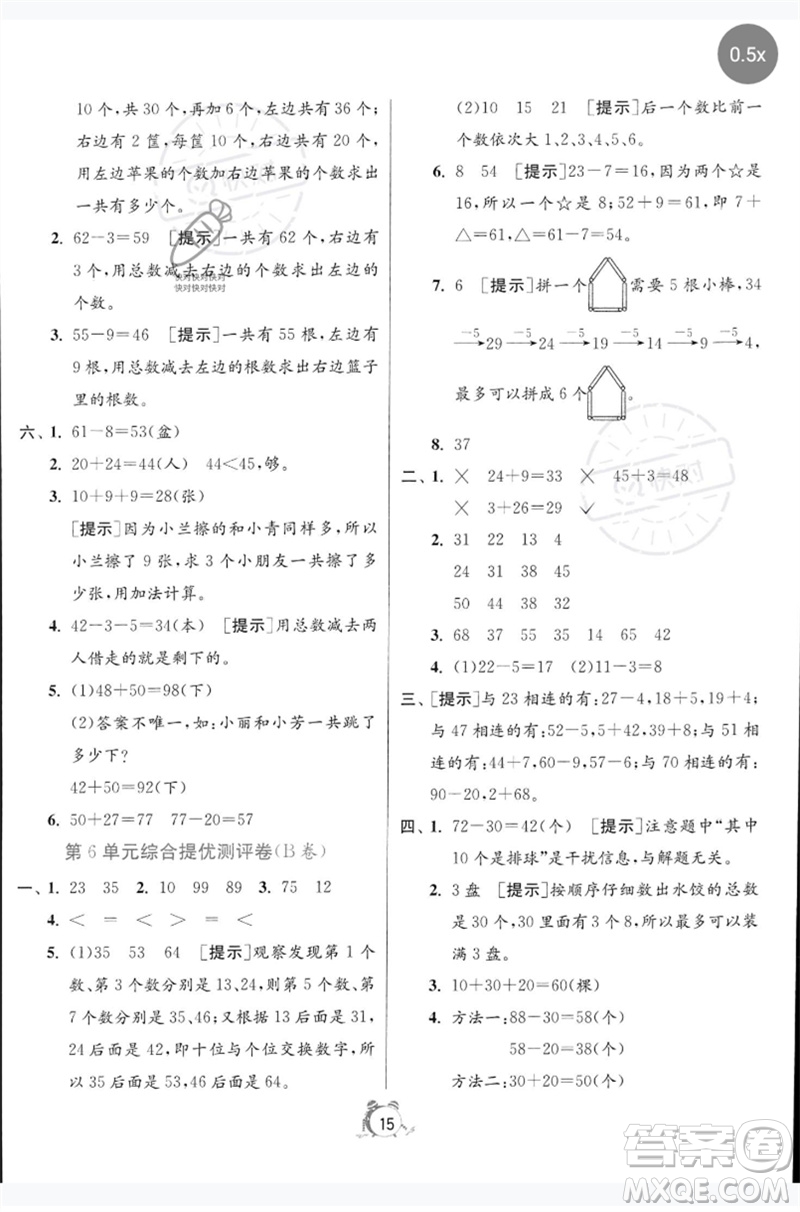 0.5x
10 个，共 30 个，再加 6 个，左边共有 36 个；
右边有 2 筐，每筐 10 个，右边共有 20 个，
用左边苹果的个数加右边苹果的个数求出
一共有多少个。
2. 62－3＝59 [提示]一共有 62 个，右边有
3 个，用总数减去右边的个数求出左边的
个数。
快对快对快对
快对快对快对
3. 55－9＝46 [提示]一共有 55 根，左边有
9 根，用总数减去左边的根数求出右边篮子
里的根数。
六、1. 61－8＝53(盆)
2. 20＋24＝44(人) 44＜50，够。
3. 10＋9＋9＝28(张)
[提示]因为小兰擦的和小青同样多，所以
小兰擦了 9 张，求 3 个小朋友一共擦了多
少张，用加法计算。
4. 42－3－5＝34(本) [提示]用总数减去两
人借走的就是剩下的。
5. (1)48＋50＝98(下)
(2)答案不唯一，如：小丽和小芳一共跳了
多少下？
42＋50＝92(下)
6. 50＋27＝77 77－20＝57
第 6 单元综合提优测评卷(B 卷)
一、1. 23 35 2. 10 99 90 3. 75 12
4. ＜ ＝ ＜ ＞ ＝ ＞
5. (1)35 53 64 [提示]观察发现第 1 个
数、第 3 个数分别是 13、24，则第 5 个数、第
7 个数分别是 35、46；又根据 13 后面是 31，
24 后面是 42，即十位与个位交换数字，所
以 35 后面是 53，46 后面是 64。
(2)10 15 21 [提示]后一个数比前一
个数依次大 1、2、3、4、5、6。
6. 8 54 [提示]23－7＝16，因为两个☆是
16，所以一个☆是 8；52＋9＝61，即 7＋
△＝61，△＝61－7＝54。
7. 6 [提示]拼一个 需要 5 根小棒，34
－5→29 －5→24 －5→19 －5→14 －5→9 －5→4，
最多可以拼成 6 个 。
8. 37
二、1. × 24＋9＝33 × 45＋3＝48
× 3＋26＝29 ✓
2. 31 22 13 4
24 31 38 45
50 44 38 32
3. 68 37 55 35 14 65 42
4. (1)22－5＝17 (2)11－3＝8
三、[提示]与 23 相连的有：27－4，18＋5；
与 47 相连的有：52－5，5＋42；与 51 相连
的有：44＋7，60－9，57－6；与 70 相连的有：
90－20，2＋68。
四、1. 72－30＝42(个) [提示]注意题中“其中
10 个是排球”是干扰信息，与解题无关。
2. 3 盘 [提示]按顺序仔细数出水饺的总数
是 30 个，30 里面有 3 个十，所以可以装
满 3 盘。
3. 10＋30＋20＝60(棵)
4. 方法一：88－30＝58(个)
58－20＝38(个)
方法二：30＋20＝50(个)
15
答案圈
MXQE.COM